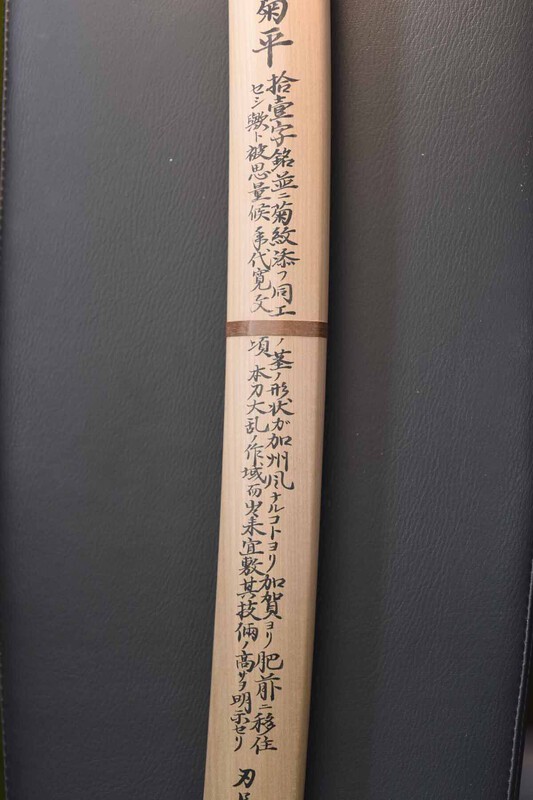 菊平
拾壹字銘並ニ菊紋添フ同工ノ茎ノ形状ガ加州風ナルコトヨリ加賀ヨリ肥前ニ移住
セシ歟ト被思量候年代寛文頃 本刀大乱ノ作域而出来宜敷其技倆ノ高サヲ明示セリ
刃長